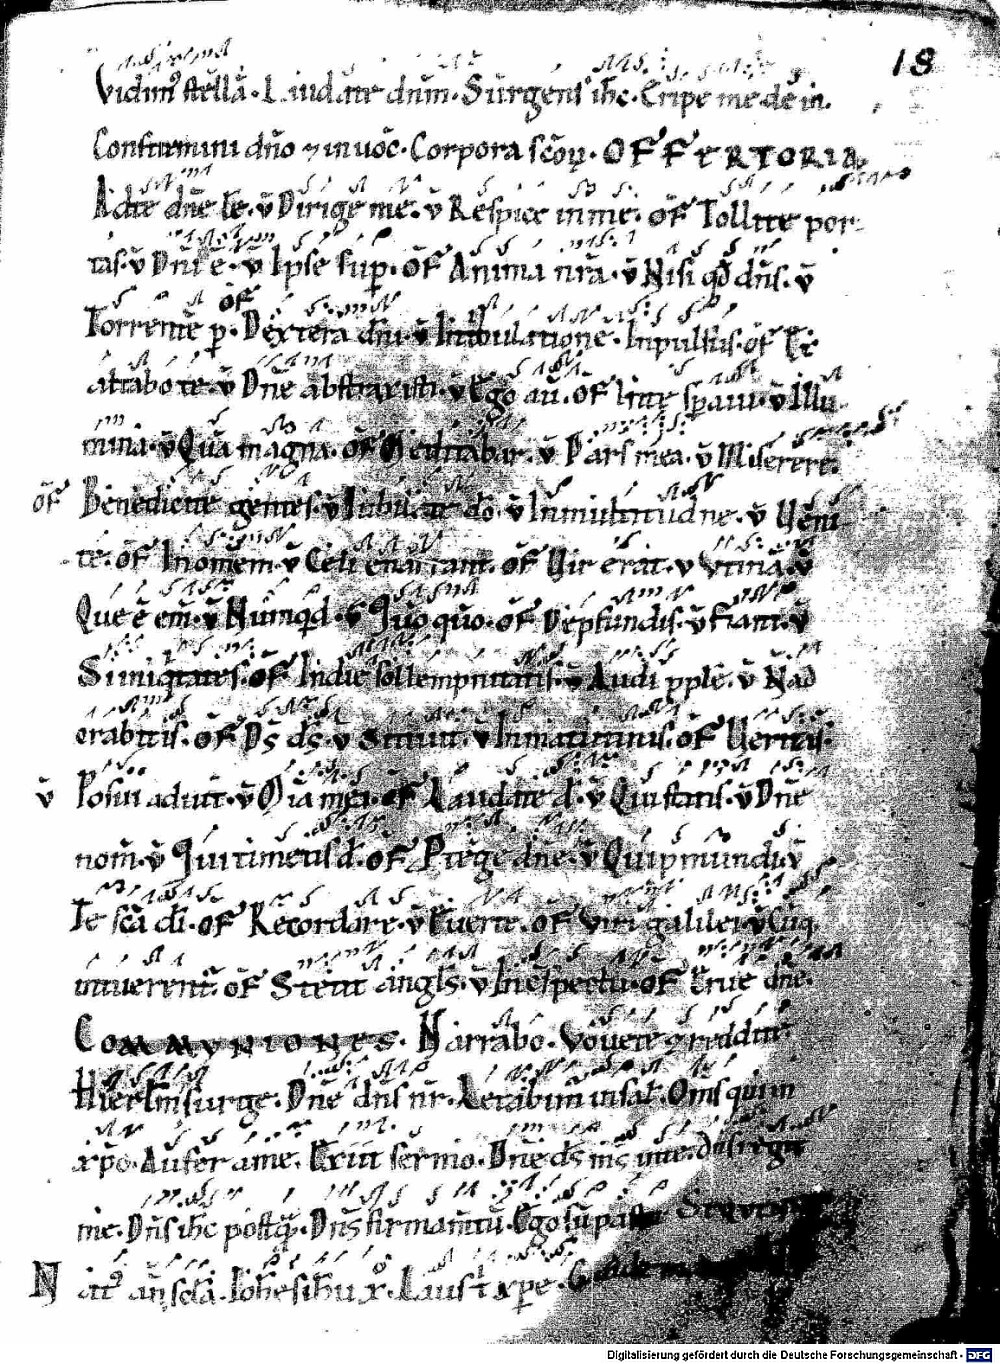 18
Vidim9 stellā. Laudate dnm. Surgens ihc. Eripe me de in.
Confitemini dño ⁊ inuoc̄. Corpora scōꝝ. OFFERTORIA
Ad te dñe le. v̄ Dirige me. v̄ Respice in me. of̄ Tollite por
tas. v̄ Dñi ē. v̄ Ipse sup. of̄ Anima nr̄a. v̄ Nisi qđ dñs. v̄
of̄
Torrentē p. Dextera dñi v̄ In tribulatione. Inpulsus. of̄ Ex
altabo te. v̄ Dn̄e abstraxisti. v̄ Ego aū. of̄ Intr̄ speraui. v̄ Illu
mina. v̄ Quā magna. of̄ Meditabar. v̄ Pars mea. v̄ Miserere.
of̄ Benedicite gentes. v̄ Iubilate dō. v̄ In multitudine. v̄ Ueni
te. of̄ In omem. v̄ Celi enarrant. of̄ Uir erat. v̄ Utinā. v̄
Que ē em̄. v̄ Numqd. v̄ Quō quō. of̄ De pfundis. v̄ Fiant. v̄
Si iniqtates. of̄ In die sollempnitatis. v̄ Audi pple. v̄ N ad
orabitis. of̄ Ds ds. v̄ Sitiuit. v̄ In matutinis. of̄ Ueritas.
v̄ Posui adiut. v̄ Mīa mea. of̄ Laudate d. v̄ Qui statis. v̄ Dn̄e
nom̄. v̄ Qui timetis d. of̄ Ptege dn̄e. v̄ Quip mundū. v̄
Te scā di. of̄ Recordare. v̄ Euerte. of̄ Viri galilei. v̄ Cūq
intuerent. of̄ Stetit angls. v̄ In cspectu. of̄ Erue dn̄e.
COMMVNIONES. Narrabo. Vouete ⁊ reddite
Hierlm surge. Dn̄e dñs nr̄. Letabim̄ in sal. Oms qui in
xp̄o. Aufer a me. Exiit sermo. Dn̄e ds ms in te. Dñs regit
me. Dñs ihc postq. Dñs firmamtū. Ego sū pastor
N at9 an scla. Iohes ihū x̄. Laus t̄ xpe.
Digitalisierung gefördert durch die Deutsche Forschungsgemeinschaft - DFG